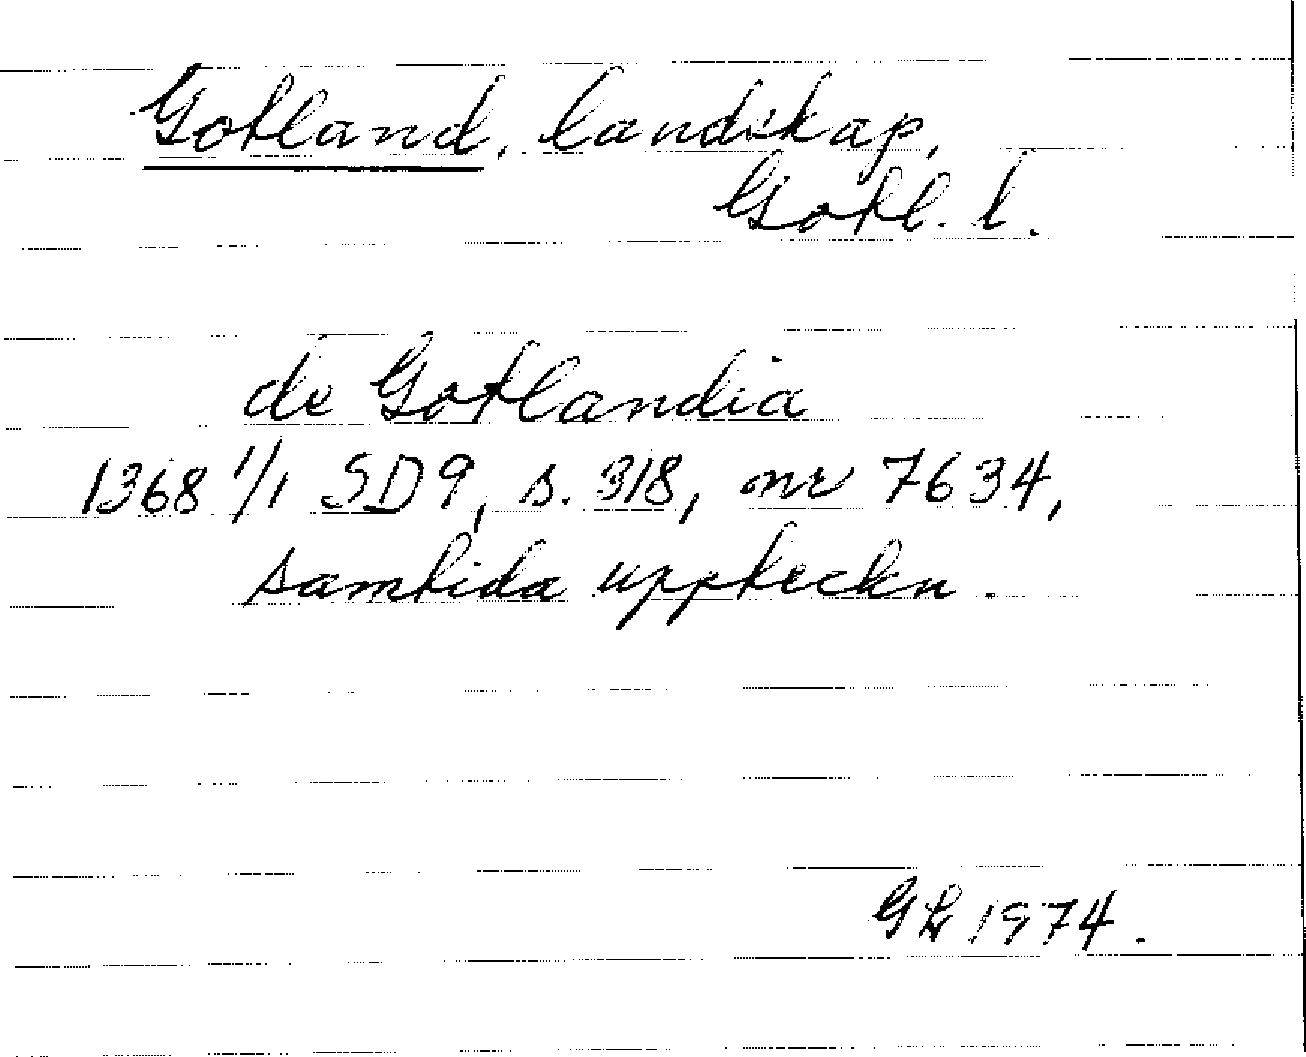 Gotland, landskap,
Gotl. l.
de Gotlandia
1368 1/1 SD9, s. 318, nr 7634,
samtida uppteckn.
GL 1974.